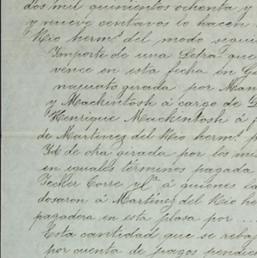 dos mil quinientos ochenta y
y nueve centavos lo hacen
Rio herms. del modo sequi
Importe de una Letra que
vence en esta fecha en Gua
najuato girada por Man
y Mackintosh á cargo de D
Henrique Mackintosh á f
de Martinez del Rio herms. p
Id. de otra girada por los mis
en iguales términos pagada
Jecker Torre y Ca. á quienes la
dosaron á Martinez del Rio he
pagadera en esta plaza por ...
Esta cantidad que se reba
por cuenta de pagos pendien